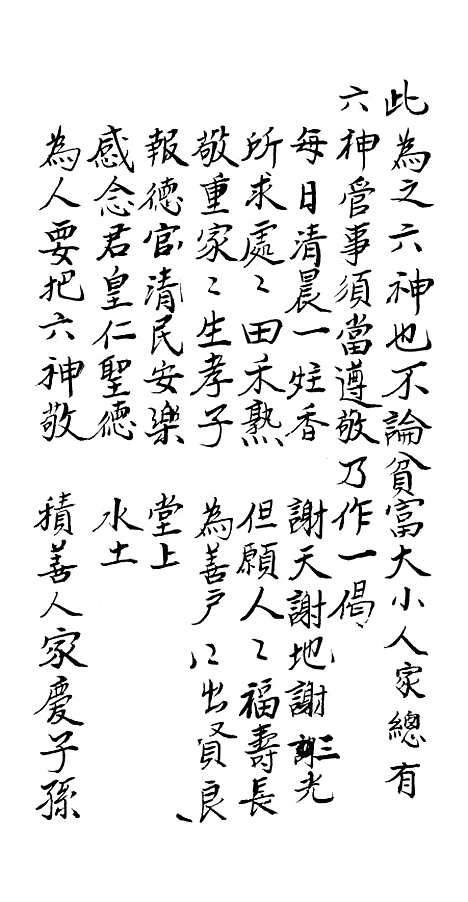 此為之六神也不論貧富大小人家總有
六神管事須當遵敬乃作一偈
每日清晨一炷香 謝天謝地謝三光
所求處〻田禾熟 但願人〻福壽長
敬重家〻生孝子 為善戶〻出賢良
報德官清民安樂 堂上
感念君皇仁聖德 水土
為人要把六神敬 積善人家慶子孫